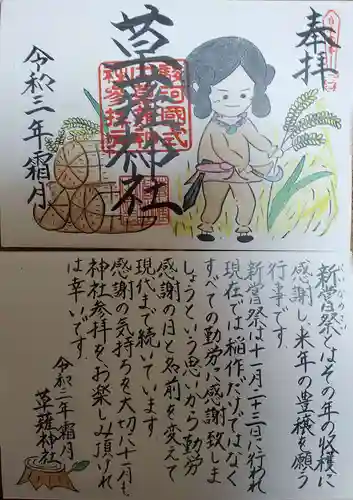 奉拝
草薙神社
令和三年霜月
新嘗祭とはその年の収穫に
感謝し来年の豊穣を願う
行事です。
新嘗祭は十一月二十三日に行われ
現在では、稲作だけではなく
すべての勤労に感謝致しま
しょうという思いから勤労
感謝の日と名前を変えて
現代まで続いています
感謝の気持ちを大切に十一月も
神社参拝をお楽しみ頂けれ
ば幸いです。
令和三年霜月
草薙神社